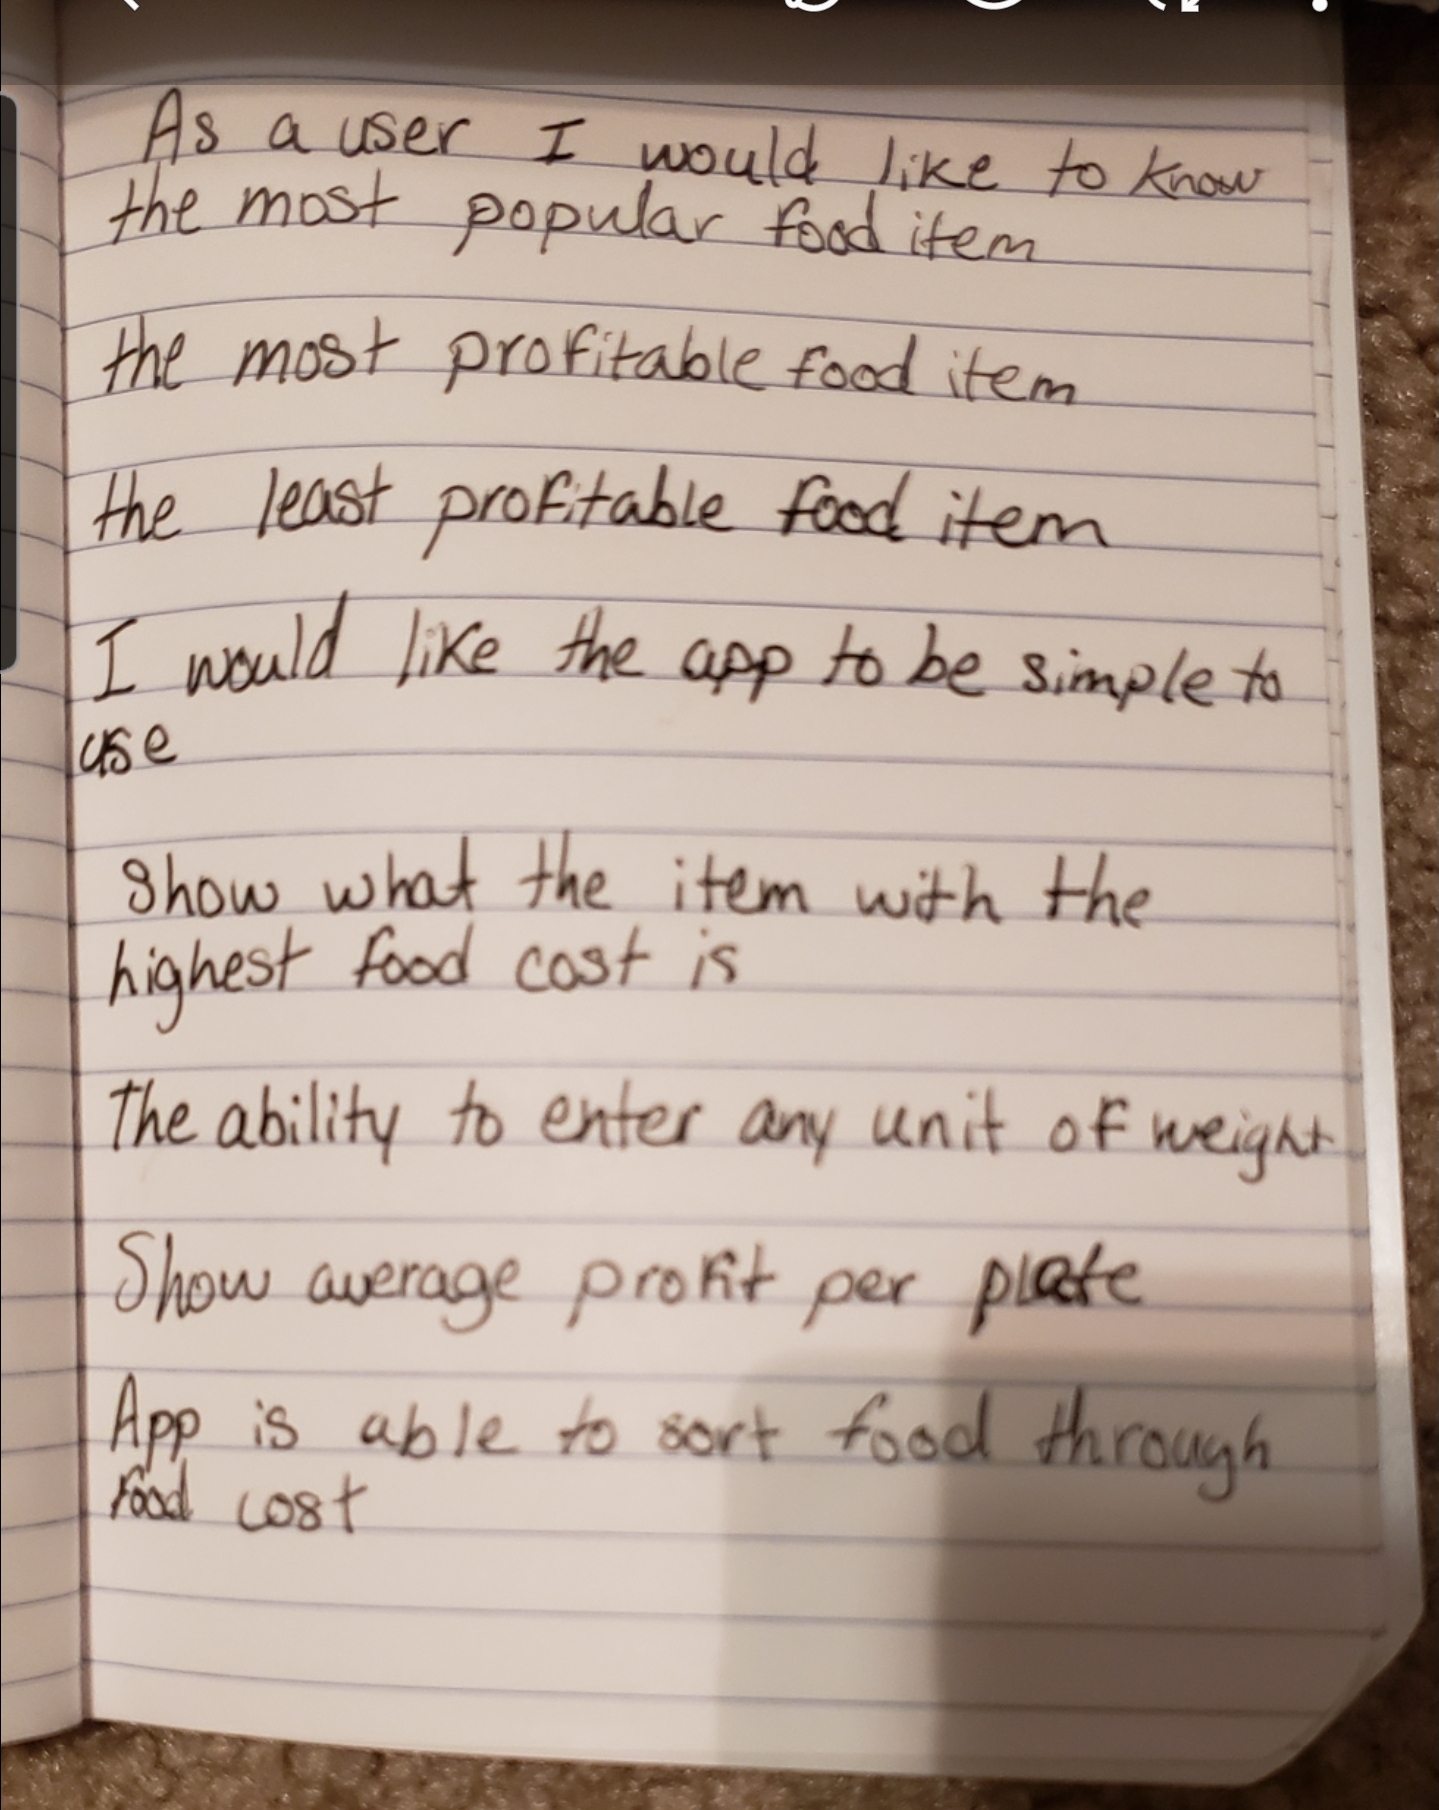 As a user I would like to know
the most popular food item
the most profitable food item
the least profitable food item
I would like the app to be simple to
use
Show what the item with the
highest food cost is
The ability to enter any unit of weight
Show average profit per plate
App is able to sort food through
food cost